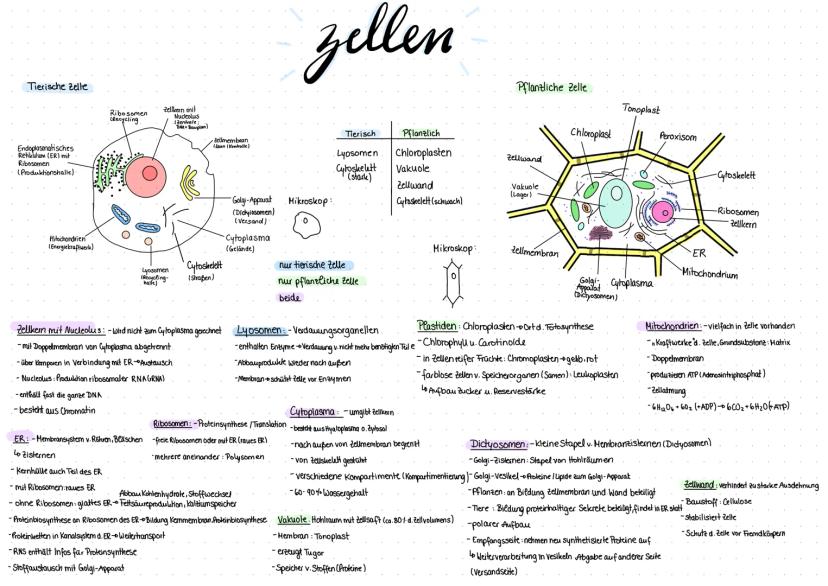 zellen
Tierische zelle
Ribosomen
(Recycling)
Zellkern mit
Nucleolus
(Zentrale;
Endoplasmatisches
Retikulum (ER) mit
Ribosomen
(Produktionshalle)
Zellmembran
Golgi-Apparat
(Dictyosomen)
(Versand)
Cytoplasma
(Gelände)
Cytoskelett
(Straßen)
Lysosomen
(Recycling-
halle)
Mitochondrien
(Energiekraftwerk)
Tierisch Pflanzlich
Lyosomen Chloroplasten
Cytoskelett Vakuole
(stark) Zellwand
Cytoskelett (schwach)
Mikroskop:
nur tierische Zelle
nur pflanzliche Zelle
beide
Mikroskop:
Pflanzliche Zelle
Tonoplast
Chloroplast
Peroxisom
Zellwand
Cytoskelett
Vakuole
(Lager)
Ribosomen
Zellkern
Zellmembran
ER
Mitochondrium
Golgi-
Apparat
(Dictyosomen)
Cytoplasma
Zellkern mit Nucleolus: - wird nicht zum Cytoplasma gerechnet
- mit Doppelmembran von Cytoplasma abgetrennt
- über Kernporen in Verbindung mit ER → Austausch
- Nucleolus: Produktion ribosomaler RNA (rRNA)
- enthält fast die ganze DNA
- besteht aus Chromatin
Lyosomen: - Verdauungsorganellen
- enthalten Enzyme → Verdauung v. nicht mehr benötigten Teile
- Abbauprodukte wieder nach außen
- Membran → schützt Zelle vor Enzymen
Plastiden: Chloroplasten → Ort d. Fotosynthese
- Chlorophyll u. Carotinoide
- in Zellen reifer Früchte: Chromoplasten → gelb, rot
- farblose Zellen v. Speicherorganen (Samen): Leukoplasten
↳ Aufbau Zucker u. Reservestärke
Mitochondrien: - vielfach in Zelle vorhanden
- "Kraftwerke" d. Zelle, Grundsubstanz: Matrix
- Doppelmembran
- produzieren ATP (Adenosintriphosphat)
- Zellatmung
- C6H12O6 + 6O2 (+ADP) → 6CO2 + 6H2O (+ATP)
Ribosomen: - Proteinsynthese / Translation
- freie Ribosomen oder mit ER (raues ER)
- mehrere aneinander: Polysomen
ER: - Membransystem v. Röhren, Bläschen
↳ Zisternen
- Kernhülle auch Teil des ER
- mit Ribosomen: raues ER
- ohne Ribosomen: glattes ER → Abbau Kohlenhydrate, Stoffwechsel
Fettsäureproduktion, Kalziumspeicher
- Proteinbiosynthese an Ribosomen des ER → Bildung Kernmembran, Proteinbiosynthese
- Proteinketten in Kanalsystem d. ER → Weitertransport
- RNS enthält Infos für Proteinsynthese
- Stoffaustausch mit Golgi-Apparat
Cytoplasma: - umgibt Zellkern
- besteht aus Hyaloplasma o. Zytosol
- nach außen von Zellmembran begrenzt
- von Zellskelett gestützt
- verschiedene Kompartimente (Kompartimentierung)
- 60-90% Wassergehalt
Vakuole: Hohlraum mit Zellsaft (ca. 80% d. Zellvolumens)
- Membran: Tonoplast
- erzeugt Tugor
- Speicher v. Stoffen (Proteine)
Dictyosomen: - kleine Stapel v. Membranzisternen (Dictyosomen)
- Golgi-Zisternen: Stapel von Hohlräumen
- Golgi-Vesikel → Proteine/Lipide zum Golgi-Apparat
- Pflanzen: an Bildung Zellmembran und Wand beteiligt
- Tiere: Bildung proteinhaltiger Sekrete beteiligt, findet in ER statt
- polarer Aufbau
- Empfangsseite: nehmen neu synthetisierte Proteine auf
↳ Weiterverarbeitung in Vesikeln Abgabe auf anderer Seite
(Versandseite)
Zellwand: verhindert zu starke Ausdehnung
- Baustoff: Cellulose
- stabilisiert Zelle
- Schutz d. Zelle vor Fremdkörpern